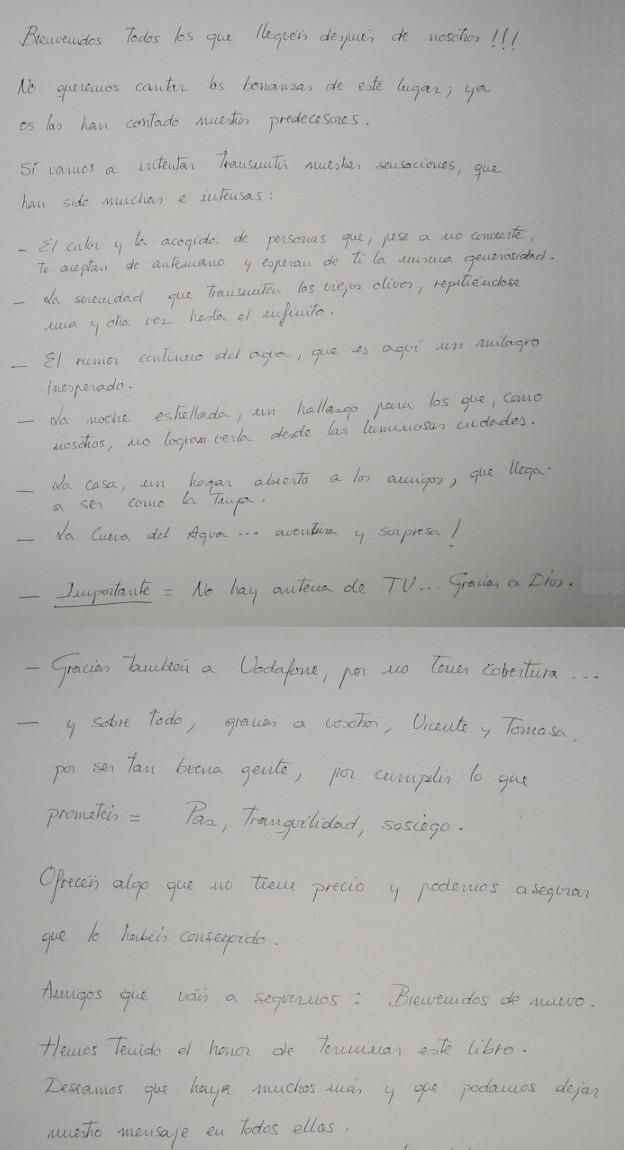 Bienvenidos Todos los que lleguéis después de nosotros!!!
No queremos cantar las bonanzas de este lugar; ya
os las han contado nuestros predecesores.
Sí vamos a intentar Transmitir nuestras sensaciones, que
han sido muchas e intensas:
- El calor y la acogida de personas que, pese a no conocerte,
Te aceptan de antemano y esperan de ti la misma generosidad.
- La serenidad que Transmiten los viejos olivos, repitiéndose
una y otra vez hasta el infinito.
- El rumor continuo del agua, que es aquí un milagro
inesperado.
- La noche estrellada, un hallazgo para los que, como
nosotros, no logran verla desde las luminosas ciudades.
- La casa, un hogar abierto a los amigos, que llega
a ser como la Tuya.
- La Cueva del Agua... aventura y sorpresa!
- Importante = No hay antena de TV... Gracias a Dios.
- Gracias También a Vodafone, por no Tener cobertura...
- y sobre Todo, gracias a vosotros, Vicente y Tomasa,
por ser tan buena gente, por cumplir lo que
prometéis = Paz, Tranquilidad, sosiego.
Ofrecéis algo que no tiene precio y podemos asegurar
que lo habéis conseguido.
Amigos que váis a seguirnos: Bienvenidos de nuevo.
Hemos Tenido el honor de Terminar este libro.
Deseamos que haya muchos más y que podamos dejar
nuestro mensaje en todos ellos.